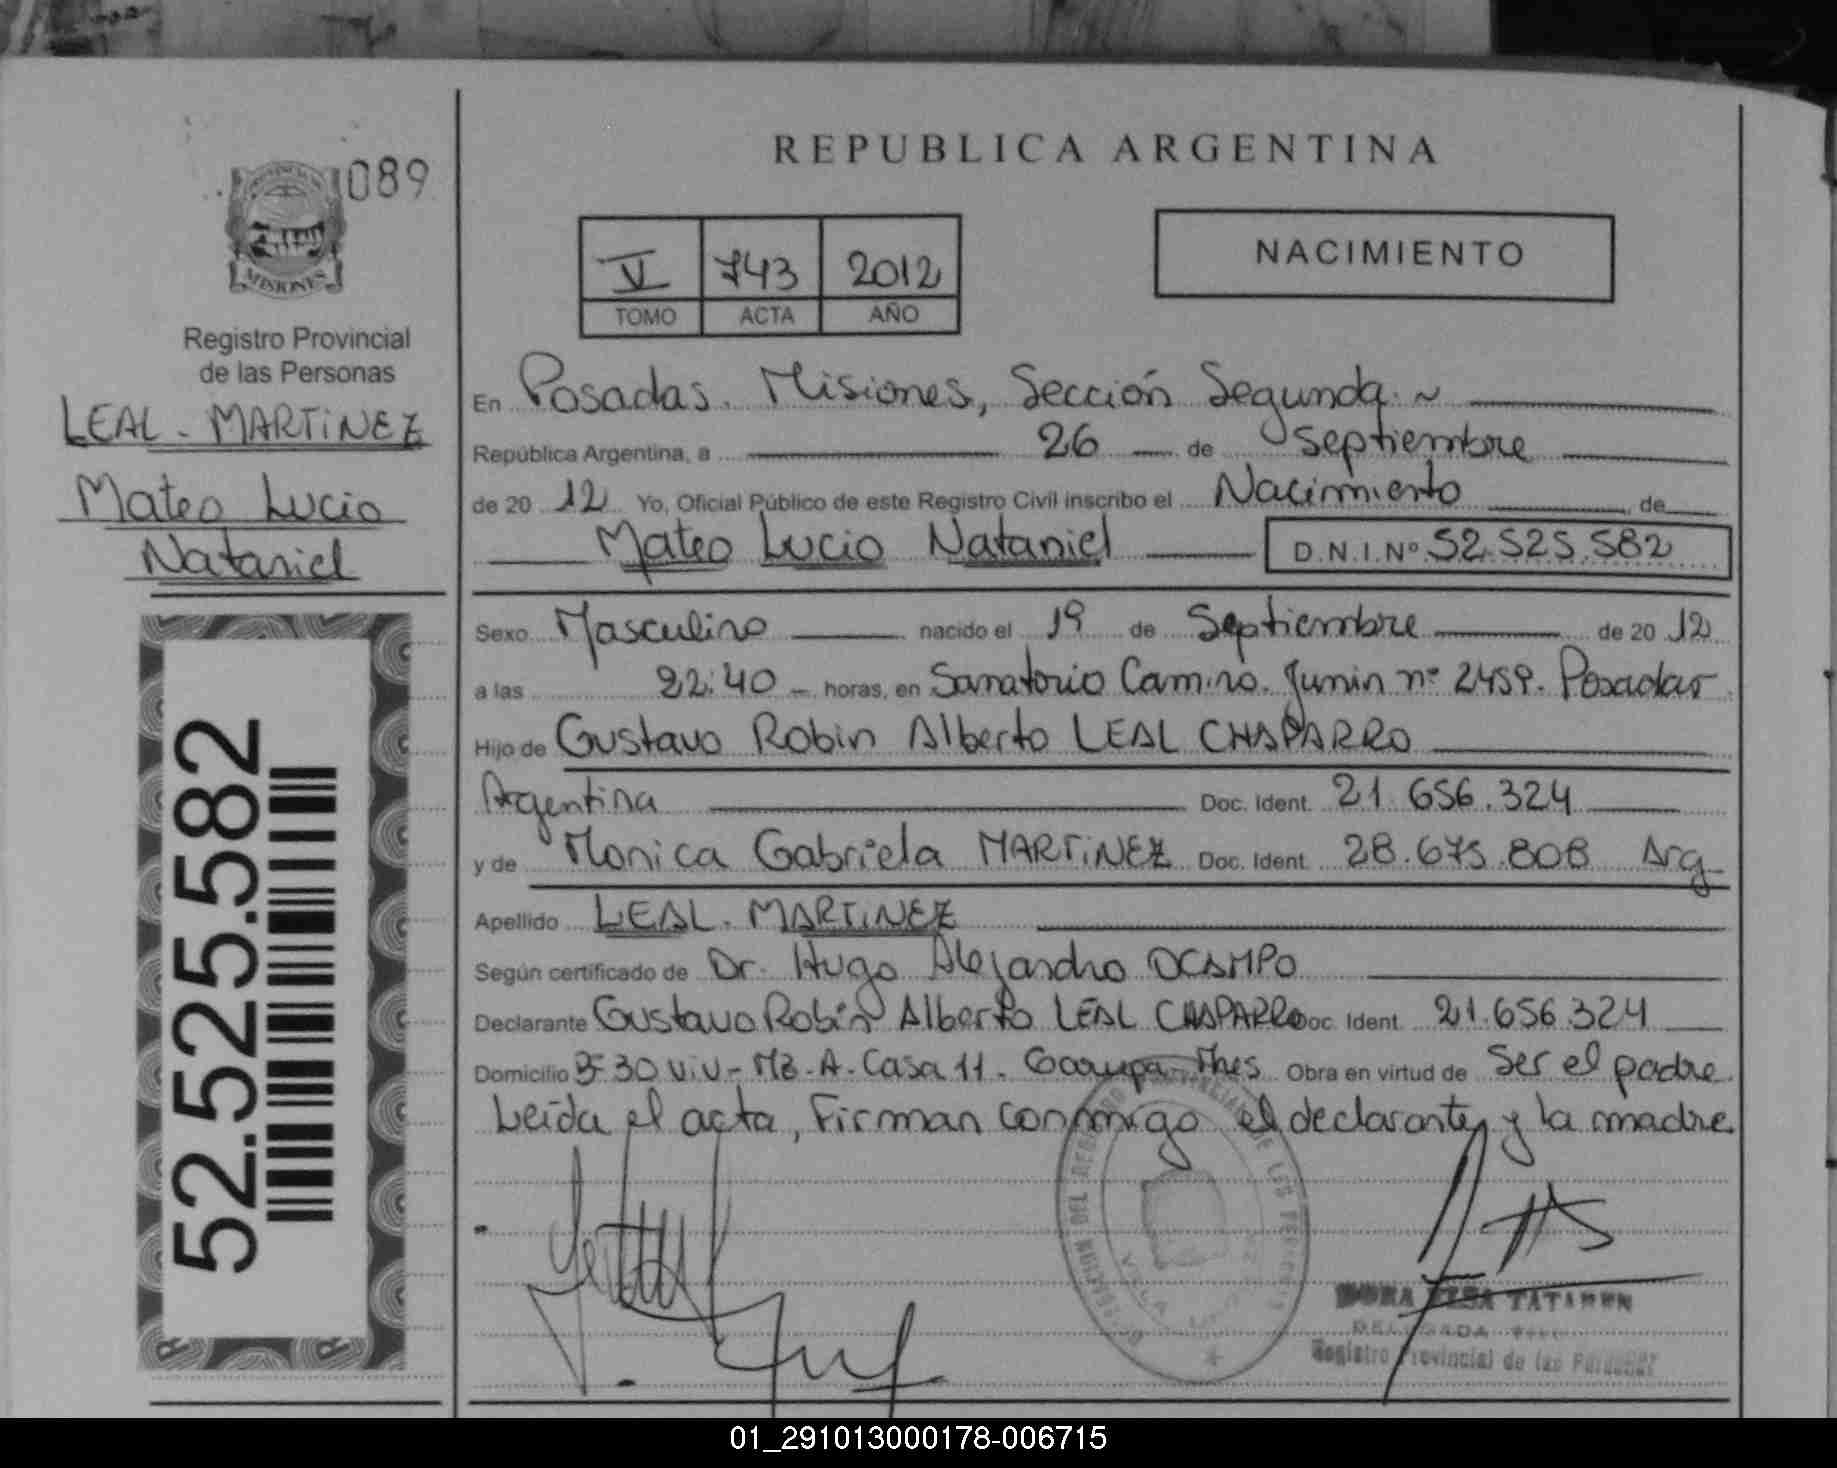 089
PROVINCIA DE
MISIONES
Registro Provincial
de las Personas
LEAL - MARTINEZ
Mateo Lucio
Nataniel
52.525.582
REPUBLICA ARGENTINA
V 743 2012
TOMO ACTA AÑO
NACIMIENTO
En Posadas. Misiones, Sección Segunda. ~
República Argentina, a 26 de Septiembre
de 20 12 Yo, Oficial Público de este Registro Civil inscribo el Nacimiento, de
Mateo Lucio Nataniel D.N.I.Nº 52.525.582
Sexo Masculino nacido el 19 de Septiembre de 20 12
a las 22:40 - horas, en Sanatorio Camino. Junin nº 2459. Posadas
Hijo de Gustavo Robin Alberto LEAL CHAPARRO
Argentina Doc. Ident. 21.656.324
y de Monica Gabriela MARTINEZ Doc. Ident. 28.675.808 Arg
Apellido LEAL - MARTINEZ
Según certificado de Dr. Hugo Alejandro OCAMPO
Declarante Gustavo Robin Alberto LEAL CHAPARRO Doc. Ident. 21.656.324
Domicilio 30 Viv - Mz - A - Casa 11 - Garupa Mnes Obra en virtud de Ser el padre.
Leída el acta, Firman conmigo el declarante y la madre.
TATAREN
Registro Provincial de las Personas
01_291013000178-006715